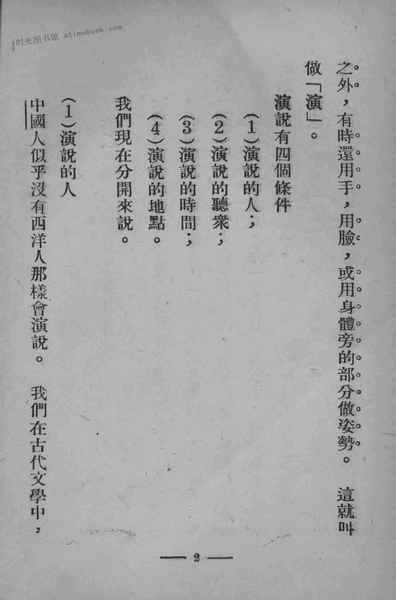 之外，有時還用手，用臉，或用身體旁的部分做姿勢。　這就叫
做「演」。
演說有四個條件
(1)演說的人；
(2)演說的聽衆；
(3)演說的時間；
(4)演說的地點。
我們現在分開來說。
(1)演說的人
中國人似乎沒有西洋人那樣會演說。　我們在古代文學中，
— 2 —
时光图书馆 atimebook.com